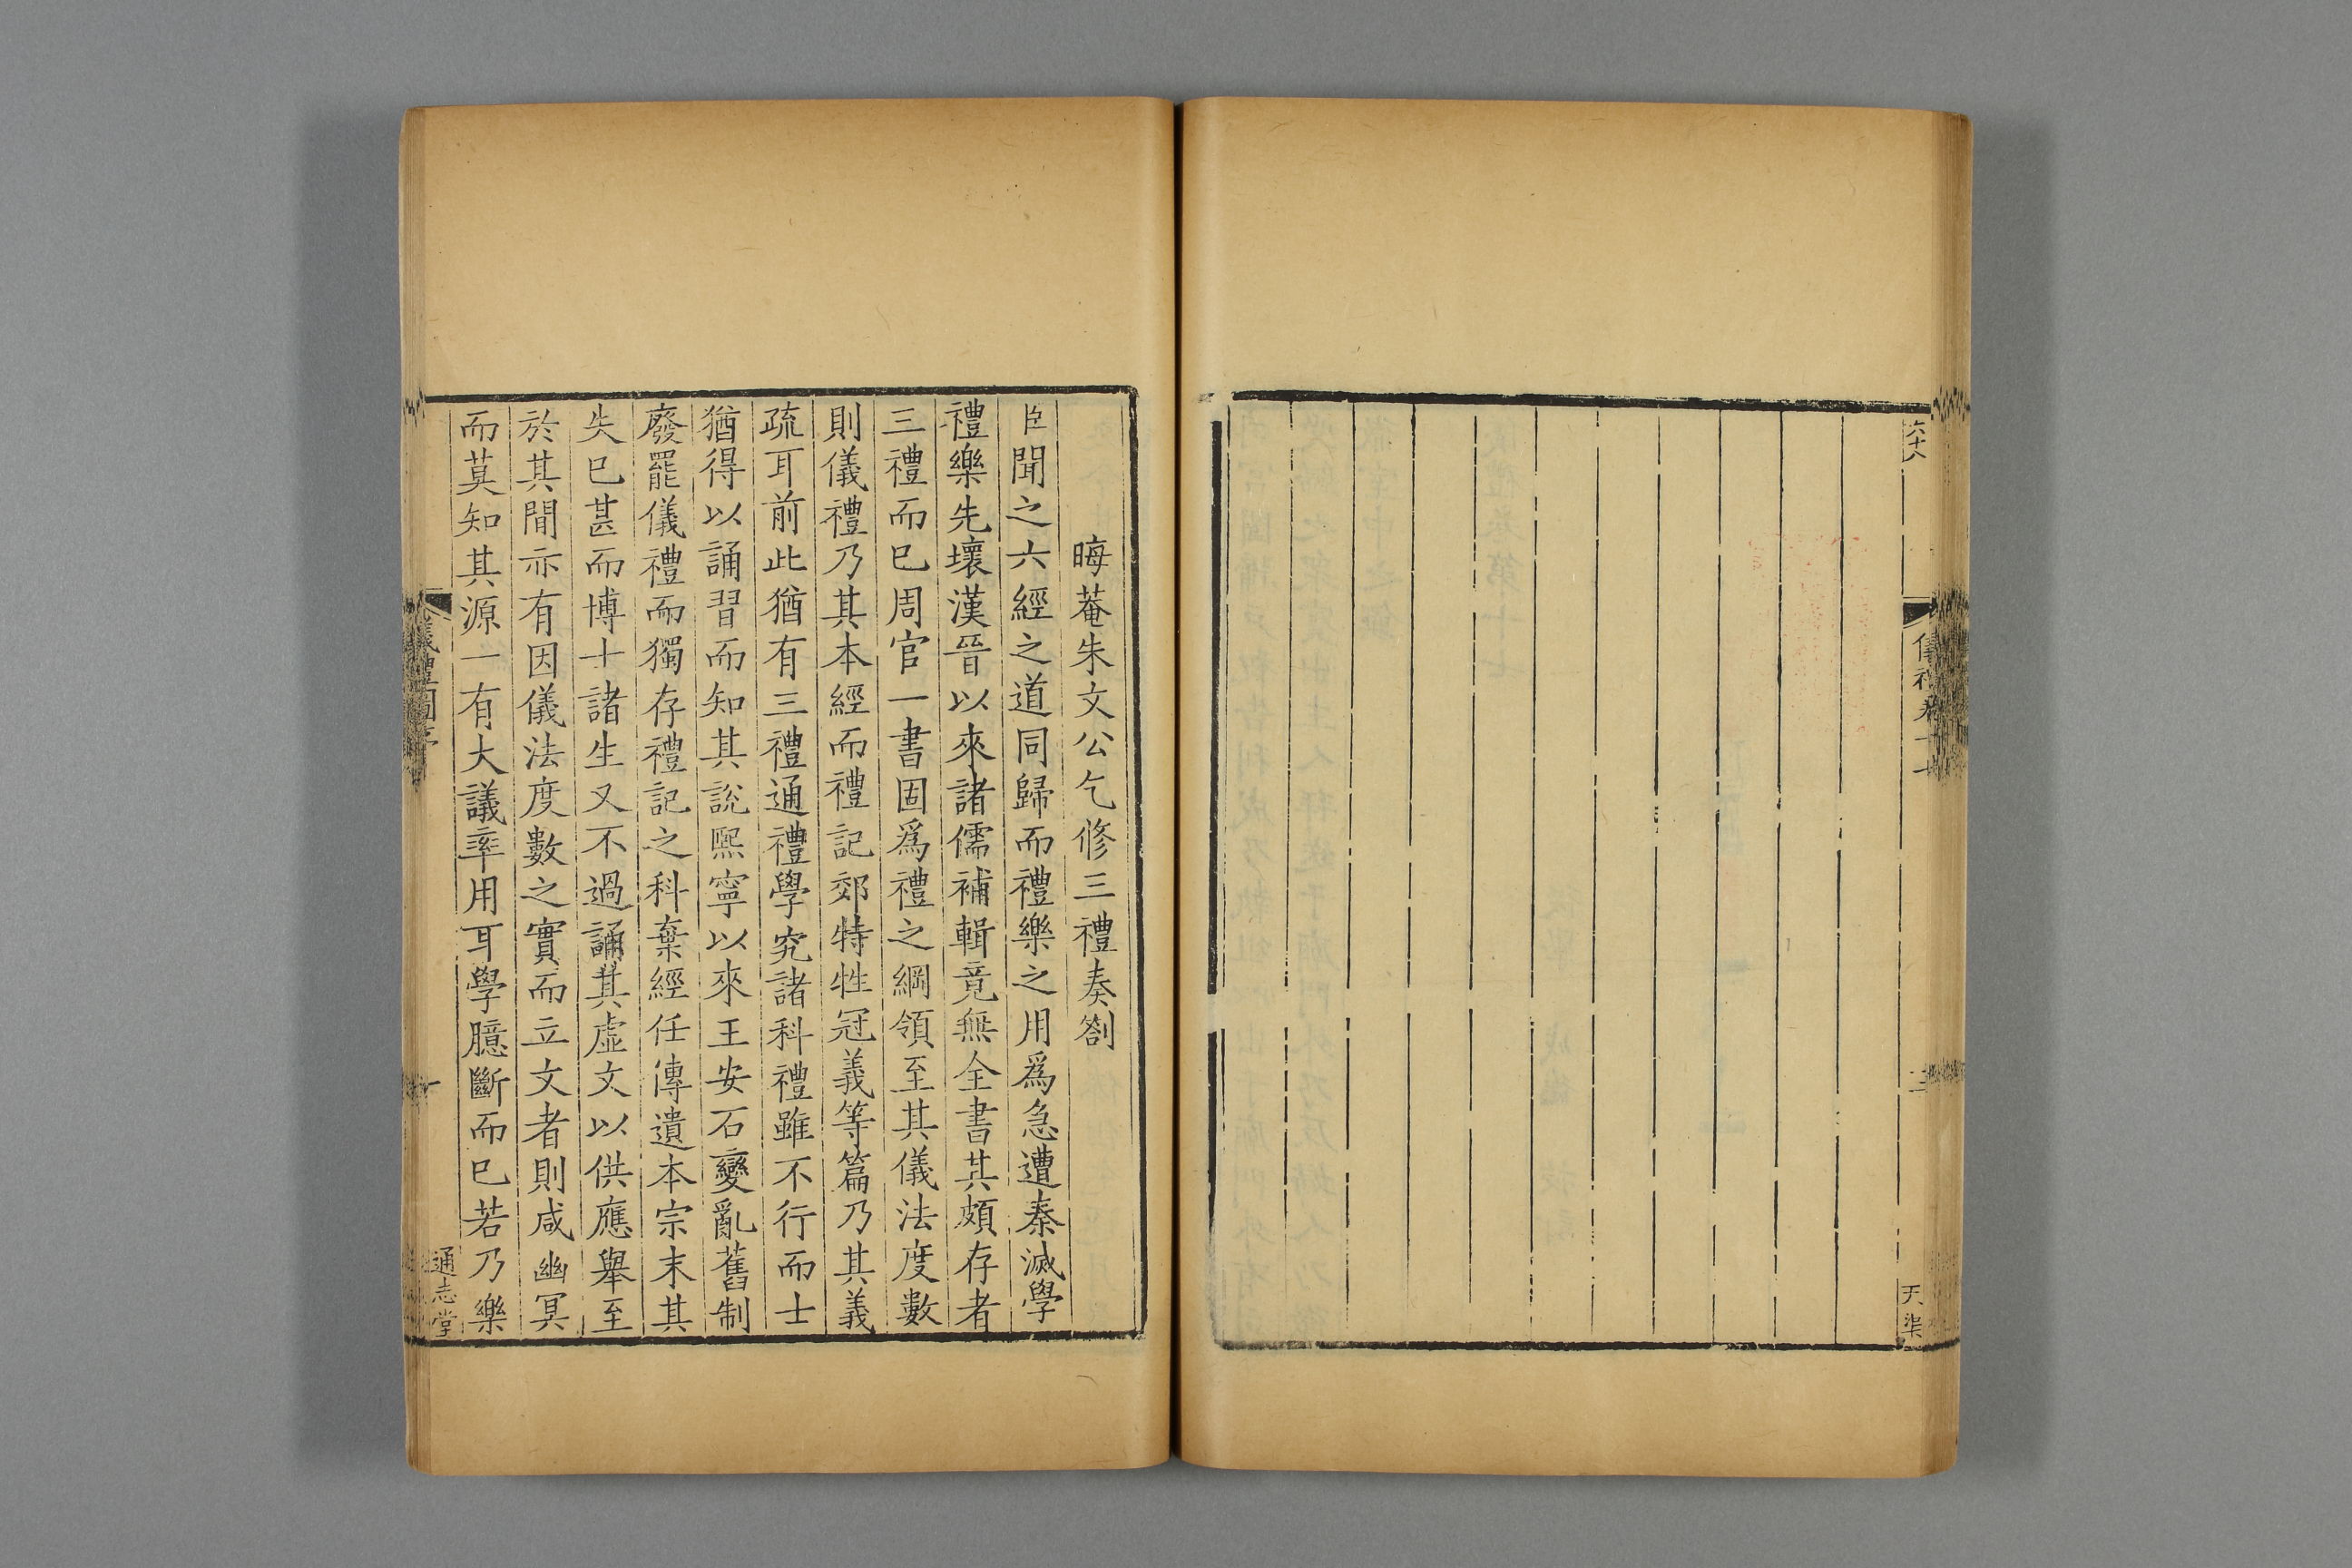 六十八
儀禮卷十七
天渠
晦菴朱文公乞修三禮奏劄
臣聞之六經之道同歸而禮樂之用爲急遭秦滅學
禮樂先壞漢晉以來諸儒補輯竟無全書其頗存者
三禮而已周官一書固爲禮之綱領至其儀法度數
則儀禮乃其本經而禮記郊特牲冠義等篇乃其義
疏耳前此猶有三禮通禮學究諸科禮雖不行而士
猶得以誦習而知其說熙寧以來王安石變亂舊制
廢罷儀禮而獨存禮記之科棄經任傳遺本宗末其
失已甚而博士諸生又不過誦其虛文以供應舉至
於其間亦有因儀法度數之實而立文者則咸幽冥
而莫知其源一有大議率用耳學臆斷而已若乃樂
儀禮圖序
通志堂